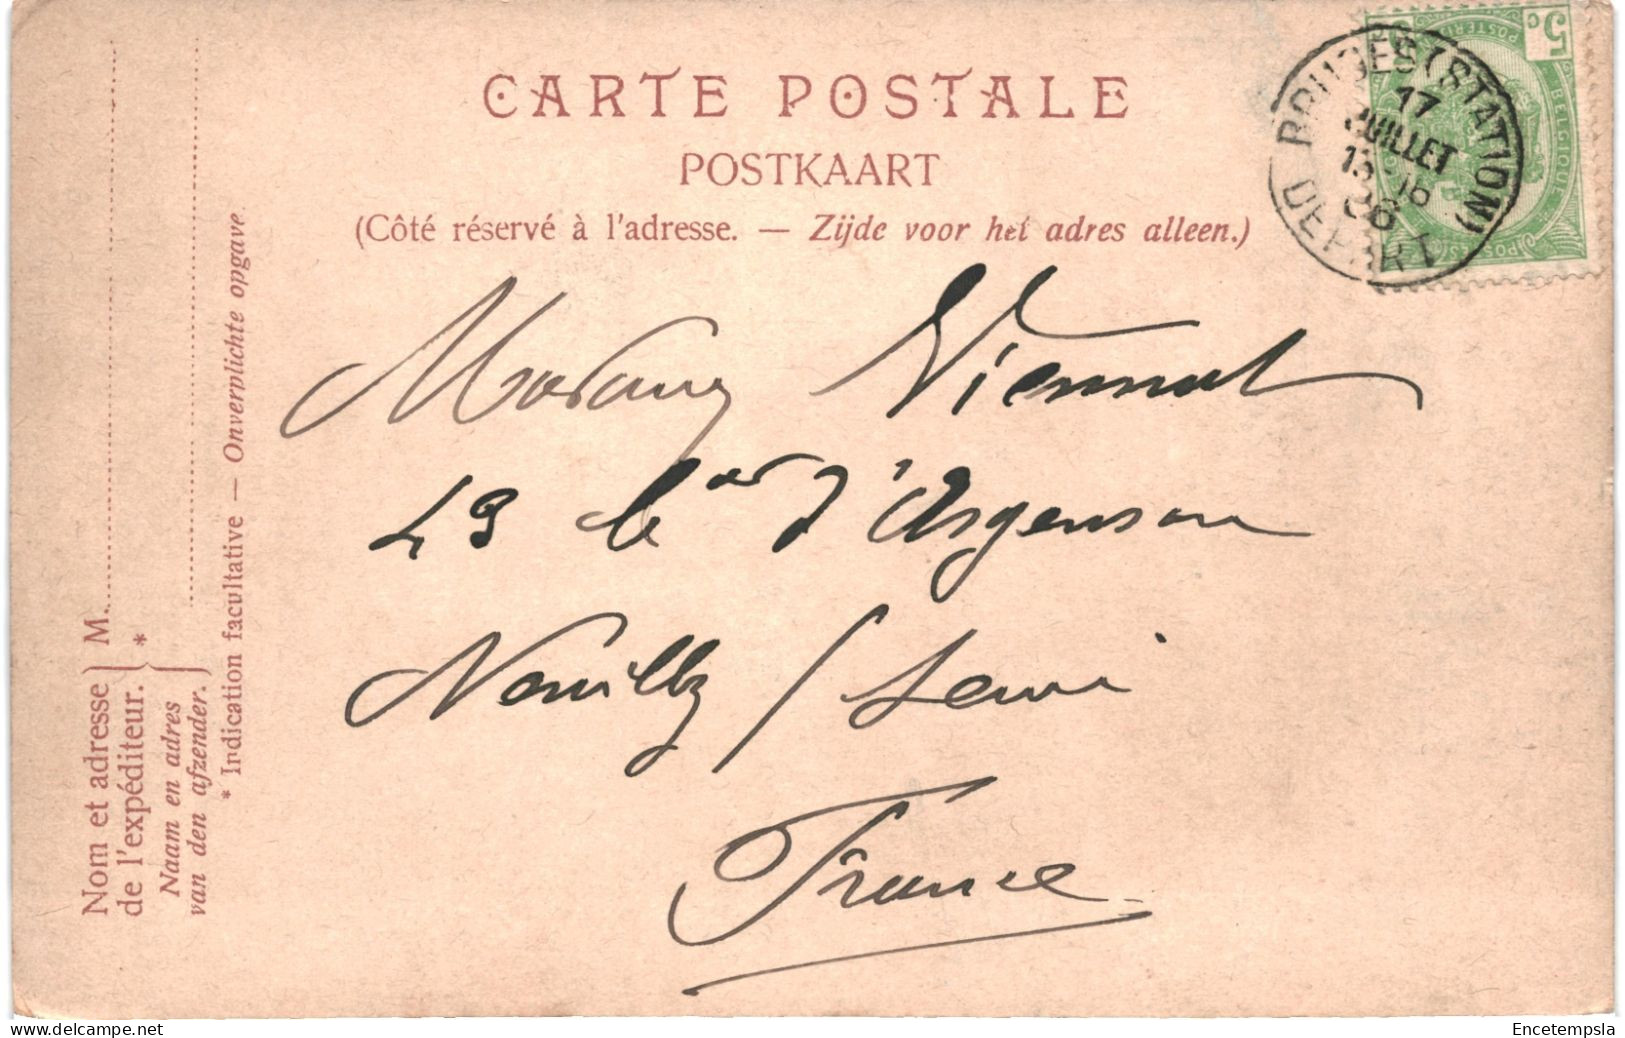 CARTE POSTALE
POSTKAART
(Côté réservé à l'adresse. — Zijde voor het adres alleen.)
BRUGES (STATION)
17
JUILLET
06
DEPART
5 c
BELGIQUE
Viennot
49 bar d'Argenson
Neuilly / Seine
France
Nom et adresse
de l'expéditeur.
M.
*
Naam en adres
van den afzender.
* Indication facultative — Onverplichte opgave.
delcampe.net
Encetempsla